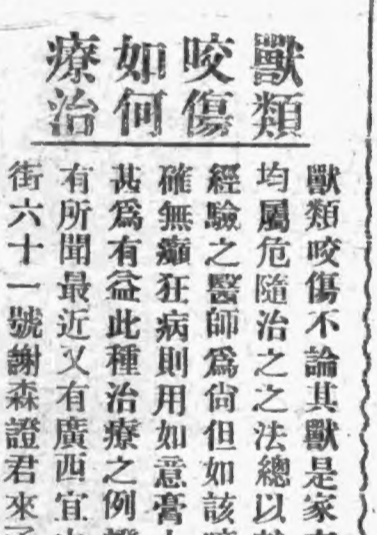 獸類
咬傷
如何
療治
獸類咬傷不論其獸是家
均屬危隨治之之法總以
經驗之醫師爲尙但如該
確無癲狂病則用如意膏
甚爲有益此種治療之例
有所聞最近又有廣西宜
街六十一號謝森證君來